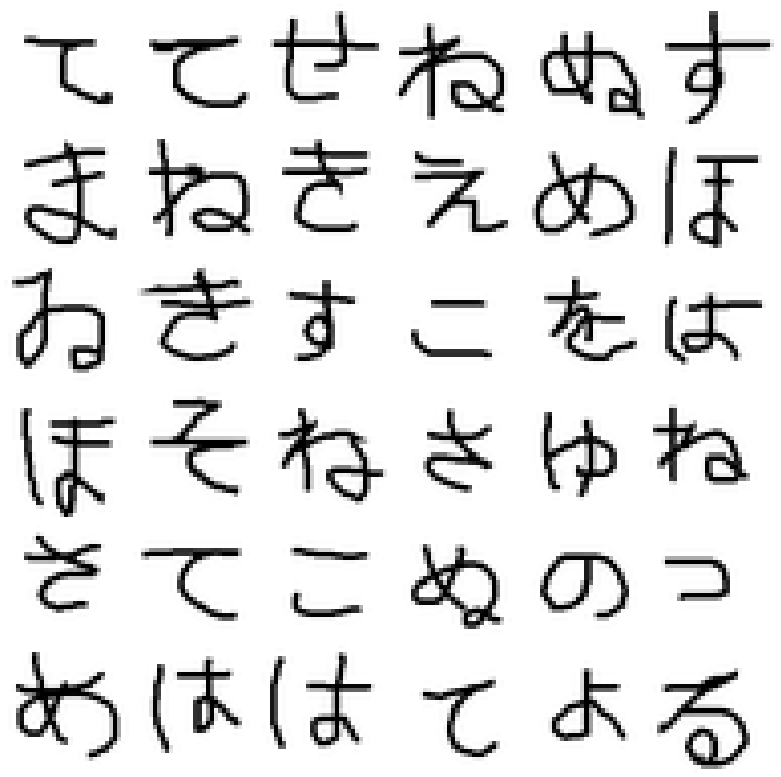 ててせねぬす
まねきえめほ
ゐきすこをは
ほそねさゆね
さてこぬのつ
めははてよる